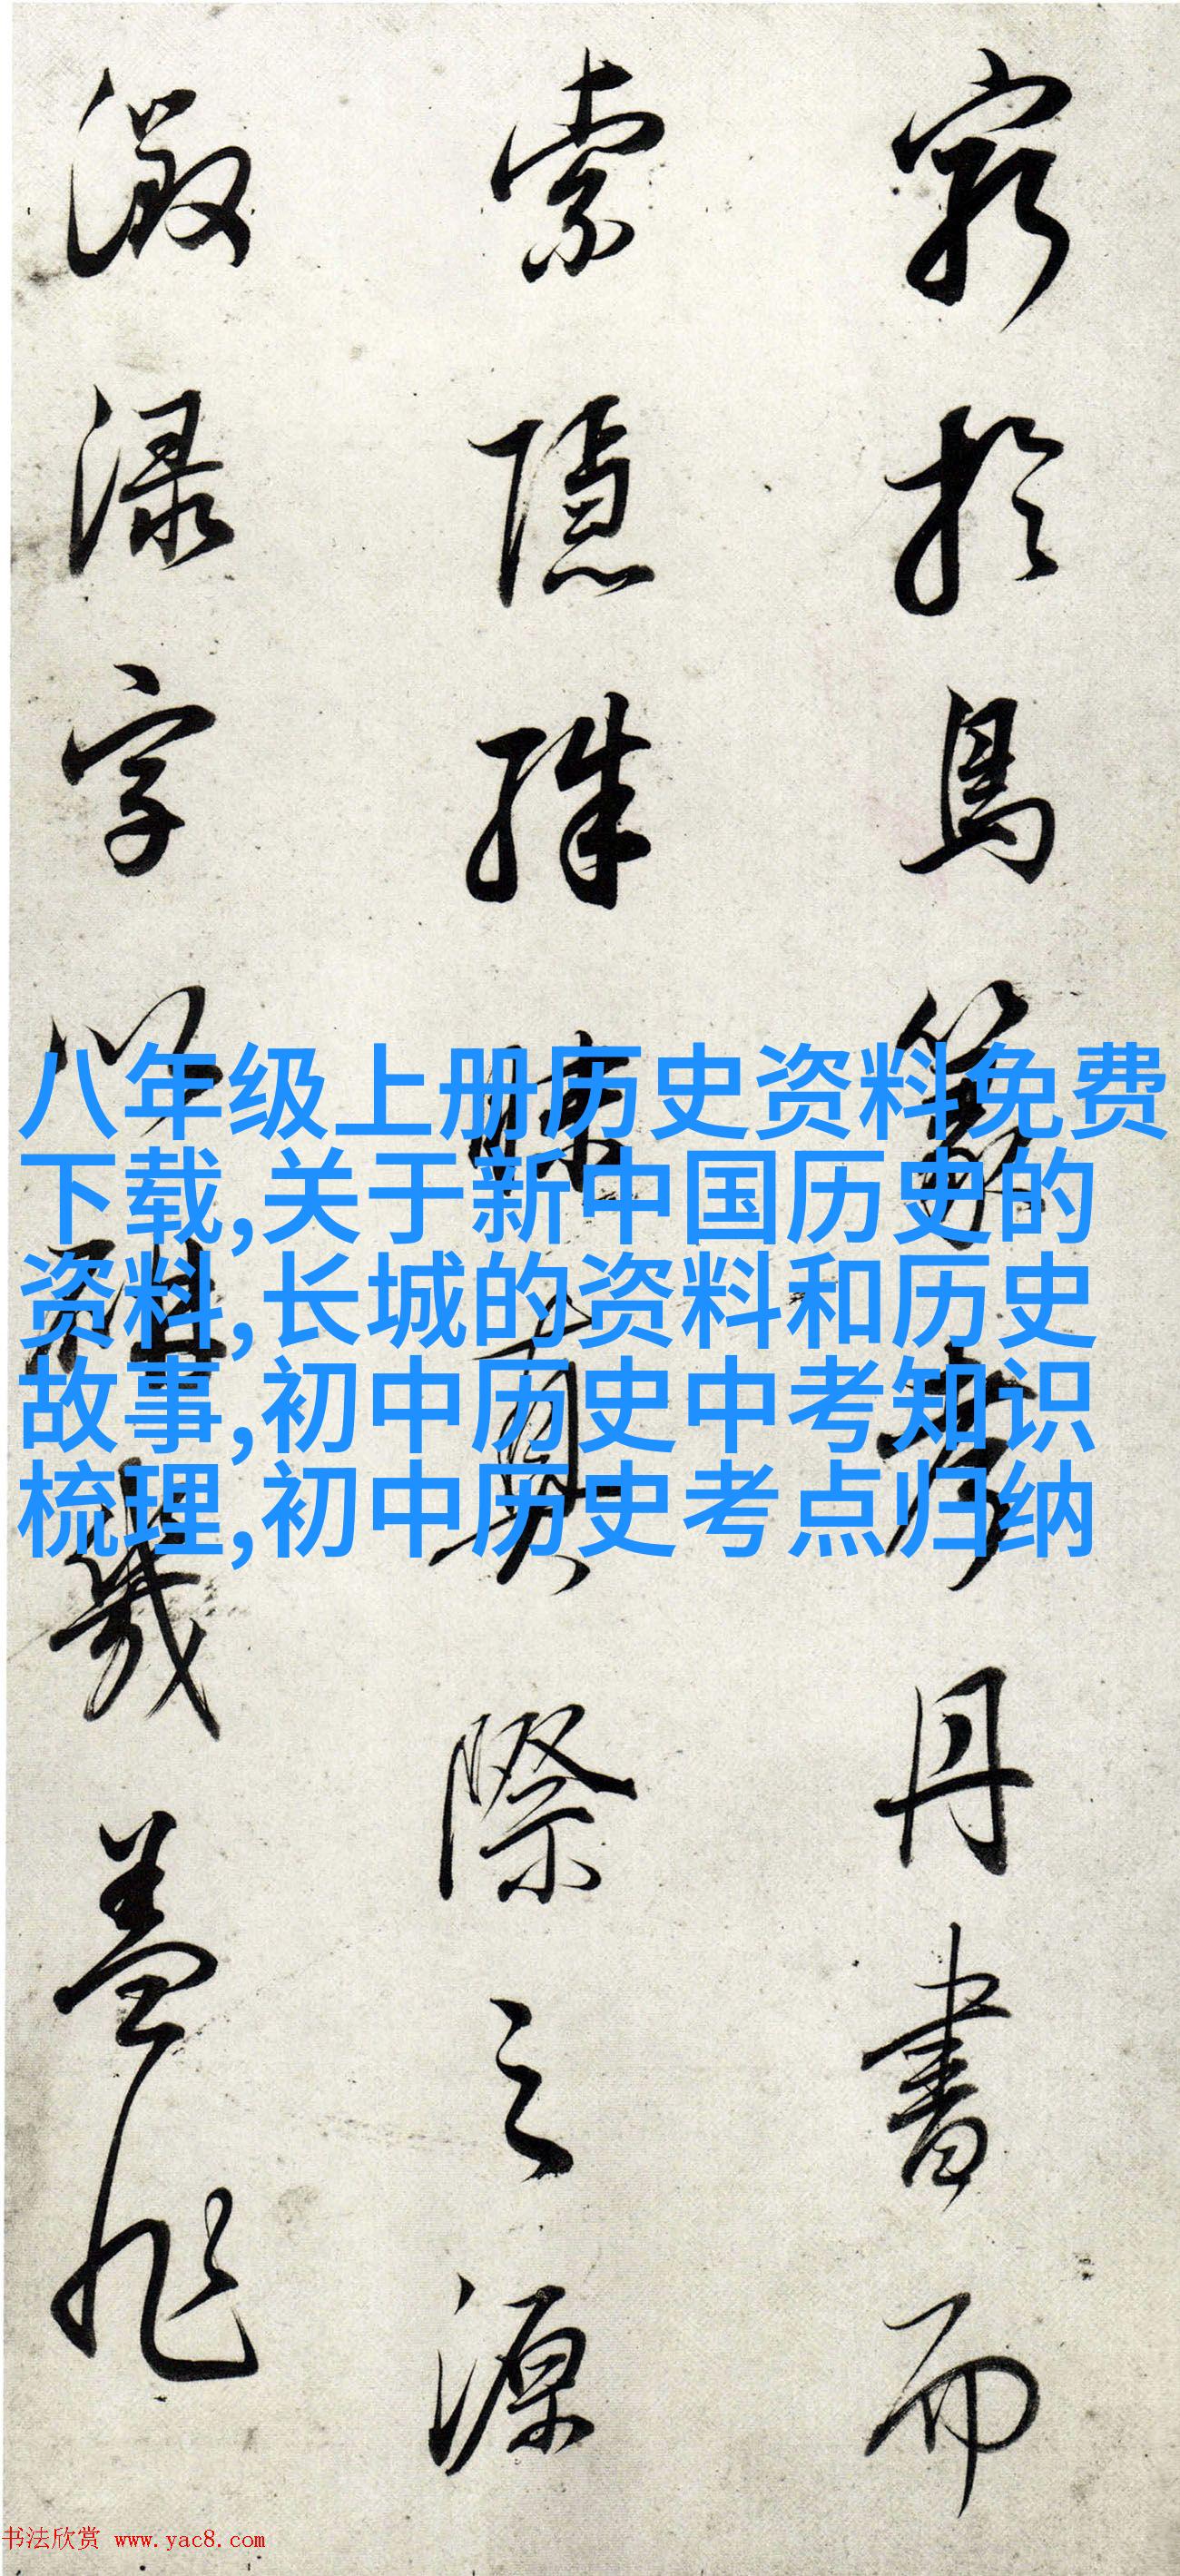 窮於鳥篆考丹書而
索隱殊真際之源
渌字體幾蓋非
八年级上册历史资料免费
下载,关于新中国历史的
资料,长城的资料和历史
故事,初中历史中考知识
梳理,初中历史考点归纳
书法欣赏 www.yac8.com